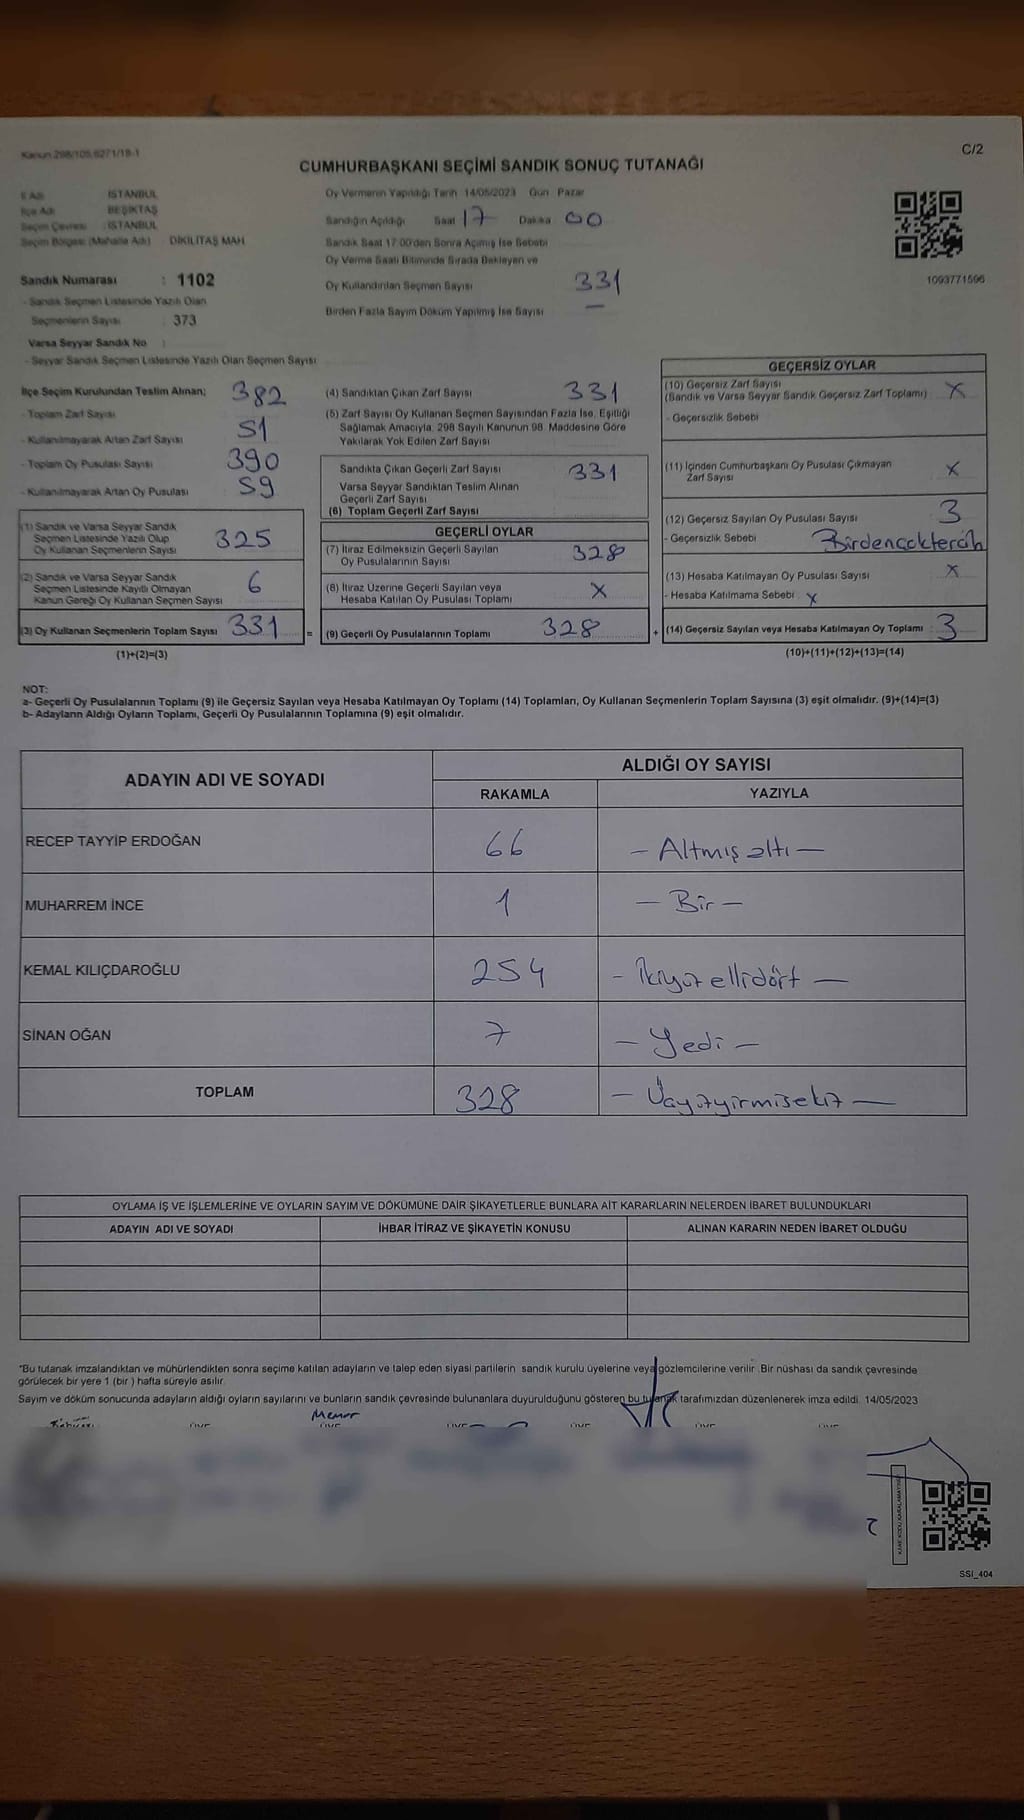 Kanun 298/105,6271/18-1
C/2
CUMHURBAŞKANI SEÇİMİ SANDIK SONUÇ TUTANAĞI
İl Adı : İSTANBUL
İlçe Adı : BEŞİKTAŞ
Seçim Çevresi : İSTANBUL
Seçim Bölgesi (Mahalle Adı) : DİKİLİTAŞ MAH.
Sandık Numarası : 1102
- Sandık Seçmen Listesinde Yazılı Olan
Seçmenlerin Sayısı : 373
Varsa Seyyar Sandık No :
- Seyyar Sandık Seçmen Listesinde Yazılı Olan Seçmen Sayısı :
Oy Vermenin Yapıldığı Tarih 14/05/2023 Gün Pazar
Sandığın Açıldığı Saat 17 Dakika 00
Sandık Saat 17.00'den Sonra Açılmış İse Sebebi
Oy Verme Saati Bitiminde Sırada Bekleyen ve
Oy Kullandırılan Seçmen Sayısı 331
Birden Fazla Sayım Döküm Yapılmış İse Sayısı —
1093771596
İlçe Seçim Kurulundan Teslim Alınan; 382
- Toplam Zarf Sayısı
- Kullanılmayarak Artan Zarf Sayısı 51
- Toplam Oy Pusulası Sayısı 390
- Kullanılmayarak Artan Oy Pusulası 59
(1) Sandık ve Varsa Seyyar Sandık
Seçmen Listesinde Yazılı Olup
Oy Kullanan Seçmenlerin Sayısı 325
(2) Sandık ve Varsa Seyyar Sandık
Seçmen Listesinde Kayıtlı Olmayan
Kanun Gereği Oy Kullanan Seçmen Sayısı 6
(3) Oy Kullanan Seçmenlerin Toplam Sayısı 331 =
(1)+(2)=(3)
(4) Sandıktan Çıkan Zarf Sayısı 331
(5) Zarf Sayısı Oy Kullanan Seçmen Sayısından Fazla İse, Eşitliği
Sağlamak Amacıyla, 298 Sayılı Kanunun 98. Maddesine Göre
Yakılarak Yok Edilen Zarf Sayısı
Sandıkta Çıkan Geçerli Zarf Sayısı 331
Varsa Seyyar Sandıktan Teslim Alınan
Geçerli Zarf Sayısı
(6) Toplam Geçerli Zarf Sayısı
GEÇERLİ OYLAR
(7) İtiraz Edilmeksizin Geçerli Sayılan
Oy Pusulalarının Sayısı 328
(8) İtiraz Üzerine Geçerli Sayılan veya
Hesaba Katılan Oy Pusulası Toplamı X
(9) Geçerli Oy Pusulalarının Toplamı 328 +
GEÇERSİZ OYLAR
(10) Geçersiz Zarf Sayısı
(Sandık ve Varsa Seyyar Sandık Geçersiz Zarf Toplamı) X
- Geçersizlik Sebebi
(11) İçinden Cumhurbaşkanı Oy Pusulası Çıkmayan
Zarf Sayısı X
(12) Geçersiz Sayılan Oy Pusulası Sayısı 3
- Geçersizlik Sebebi Birdençoktercih
(13) Hesaba Katılmayan Oy Pusulası Sayısı X
- Hesaba Katılmama Sebebi X
(14) Geçersiz Sayılan veya Hesaba Katılmayan Oy Toplamı 3
(10)+(11)+(12)+(13)=(14)
NOT:
a- Geçerli Oy Pusulalarının Toplamı (9) ile Geçersiz Sayılan veya Hesaba Katılmayan Oy Toplamı (14) Toplamları, Oy Kullanan Seçmenlerin Toplam Sayısına (3) eşit olmalıdır. (9)+(14)=(3)
b- Adayların Aldığı Oyların Toplamı, Geçerli Oy Pusulalarının Toplamına (9) eşit olmalıdır.
ADAYIN ADI VE SOYADI
ALDIĞI OY SAYISI
RAKAMLA YAZIYLA
RECEP TAYYİP ERDOĞAN 66 – Altmışaltı –
MUHARREM İNCE 1 – Bir –
KEMAL KILIÇDAROĞLU 254 – İkiyüzellidört –
SİNAN OĞAN 7 – Yedi –
TOPLAM 328 – Üçyüzyirmisekiz –
OYLAMA İŞ VE İŞLEMLERİNE VE OYLARIN SAYIM VE DÖKÜMÜNE DAİR ŞİKAYETLERLE BUNLARA AİT KARARLARIN NELERDEN İBARET BULUNDUKLARI
ADAYIN ADI VE SOYADI İHBAR İTİRAZ VE ŞİKAYETİN KONUSU ALINAN KARARIN NEDEN İBARET OLDUĞU
*Bu tutanak imzalandıktan ve mühürlendikten sonra seçime katılan adayların ve talep eden siyasi partilerin sandık kurulu üyelerine veya gözlemcilerine verilir. Bir nüshası da sandık çevresinde
görülecek bir yere 1 (bir ) hafta süreyle asılır.
Sayım ve döküm sonucunda adayların aldığı oyların sayılarını ve bunların sandık çevresinde bulunanlara duyurulduğunu gösteren bu tutanak tarafımızdan düzenlenerek imza edildi. 14/05/2023
Memur
SSI_404